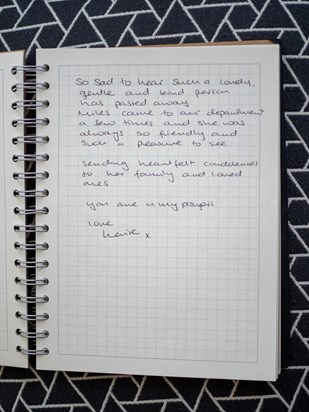 So sad to hear such a lovely,
gentle and kind person
has passed away.
came to our department
a few times and she was
always so friendly and
such a pleasure to see
Sending heartfelt condolences
to her family and loved
ones
you are in my prayers
love
x